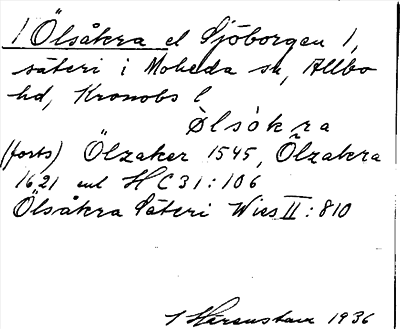 1 Ölsåkra el Sjöborgen 1,
säteri i Moheda sn, Allbo
hd, Kronobs l
Ölsókra
(forts) Ölzaker 1545, Õlzakra
1621 enl HC31:106
Ölsåkra Säteri Wies II:810
1936